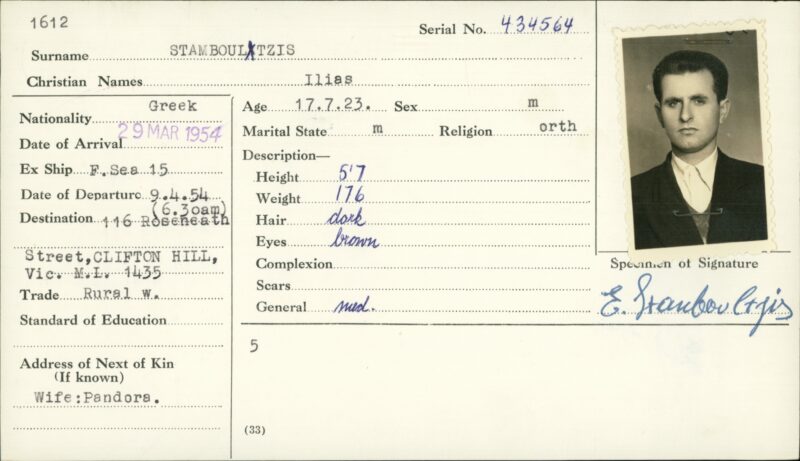 1612
Serial No. 434564
Surname STAMBOULXTZIS
Christian Names Ilias
Nationality Greek
Date of Arrival 29 MAR 1954
Ex Ship F.Sea 15
Date of Departure 9.4.54
(6.30am)
Destination 116 Roseheath
Street,CLIFTON HILL,
Vic. M.L. 1435
Trade Rural w.
Standard of Education
Address of Next of Kin
(If known)
Wife:Pandora.
Age 17.7.23. Sex m
Marital State m Religion orth
Description—
Height 5'7
Weight 176
Hair dark
Eyes brown
Complexion
Scars
General med.
5
(33)
Specimen of Signature
E. Stamboultzis